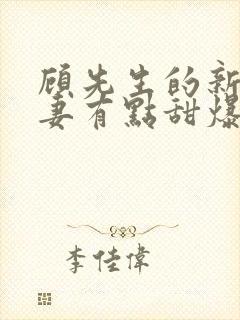 顧先生的新
妻有點甜爆
李佳偉